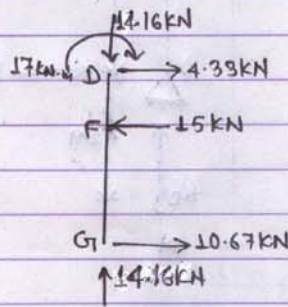 14.16KN
17KN.M D 4.33KN
F 15 KN
G 10.67KN
14.16KN